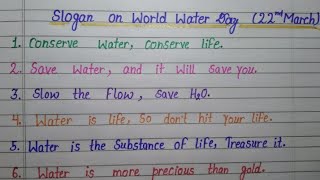 Slogan on World Water Day (22nd March)
1. Conserve Water, conserve life.
2. Save Water, and it will save you.
3. Slow the Flow, save H2O.
4. Water is life, So don't hit your life.
5. Water is the Substance of life, Treasure it.
6. Water is more precious than gold.